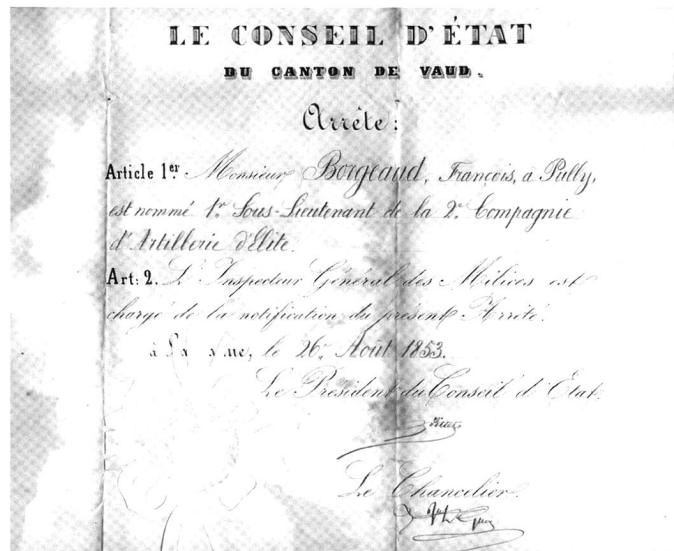 LE CONSEIL D'ÉTAT
DU CANTON DE VAUD.
Arrête:
Article 1er. Monsieur Borgeaud, François, à Pully,
est nommé 1r. Sous-Lieutenant de la 2e. Compagnie
d'Artillerie d'Elite.
Art: 2. L'Inspecteur Général des Milices est
chargé de la notification du présent Arrêté.
à la, le 26e. Août 1853.
Le Président du Conseil d'Etat.
Le Chancelier.